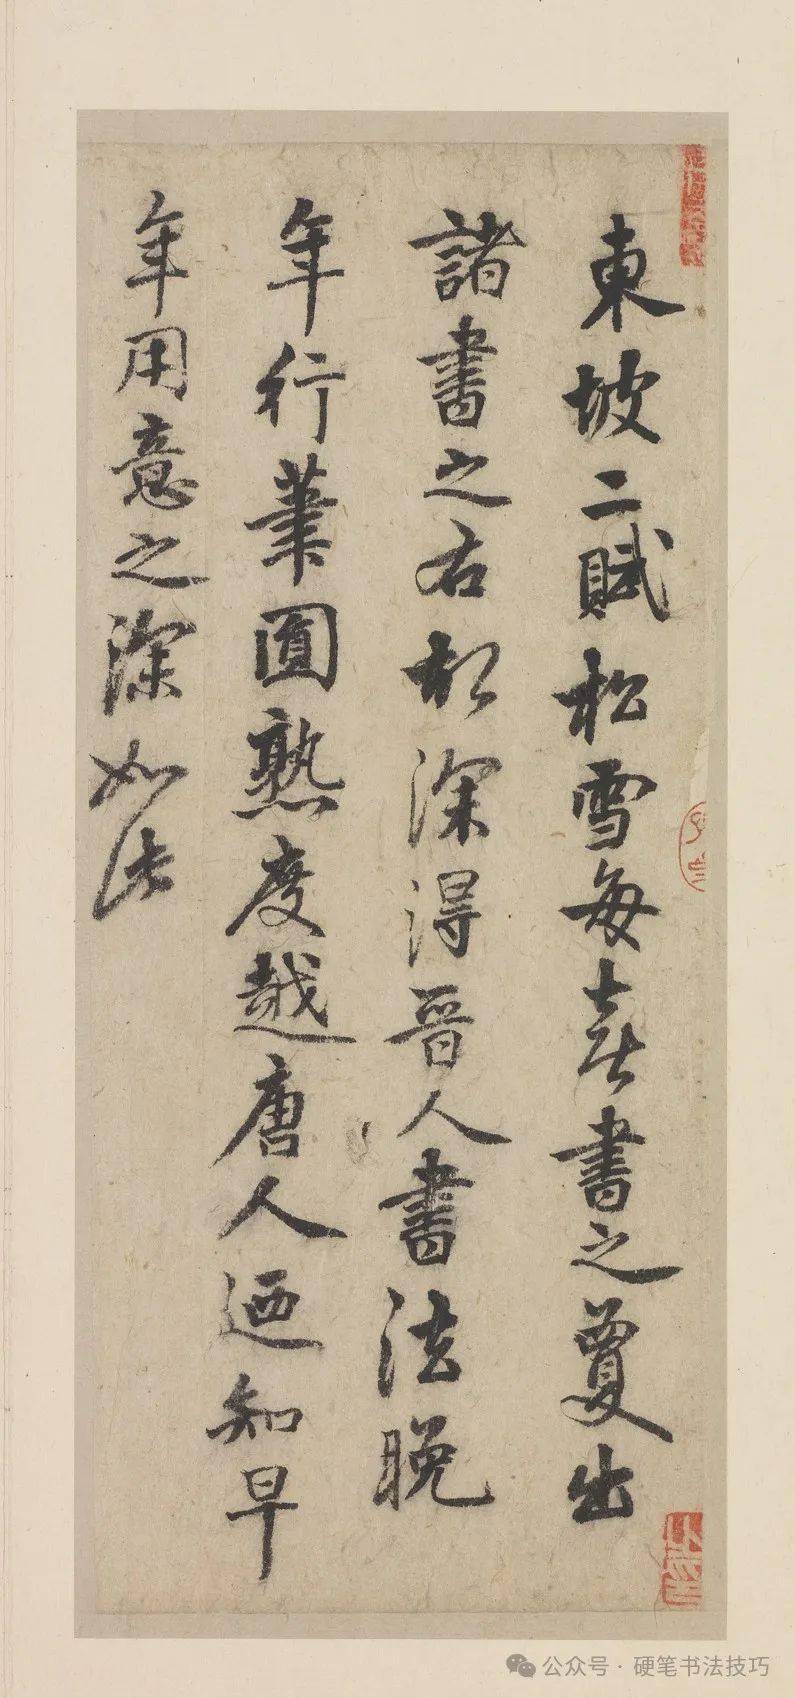 東坡二賦松雪每喜書之敻出
諸書之右初深得晉人書法晚
年行筆圓熟度越唐人迺知早
年用意之深如此
公众号 · 硬笔书法技巧